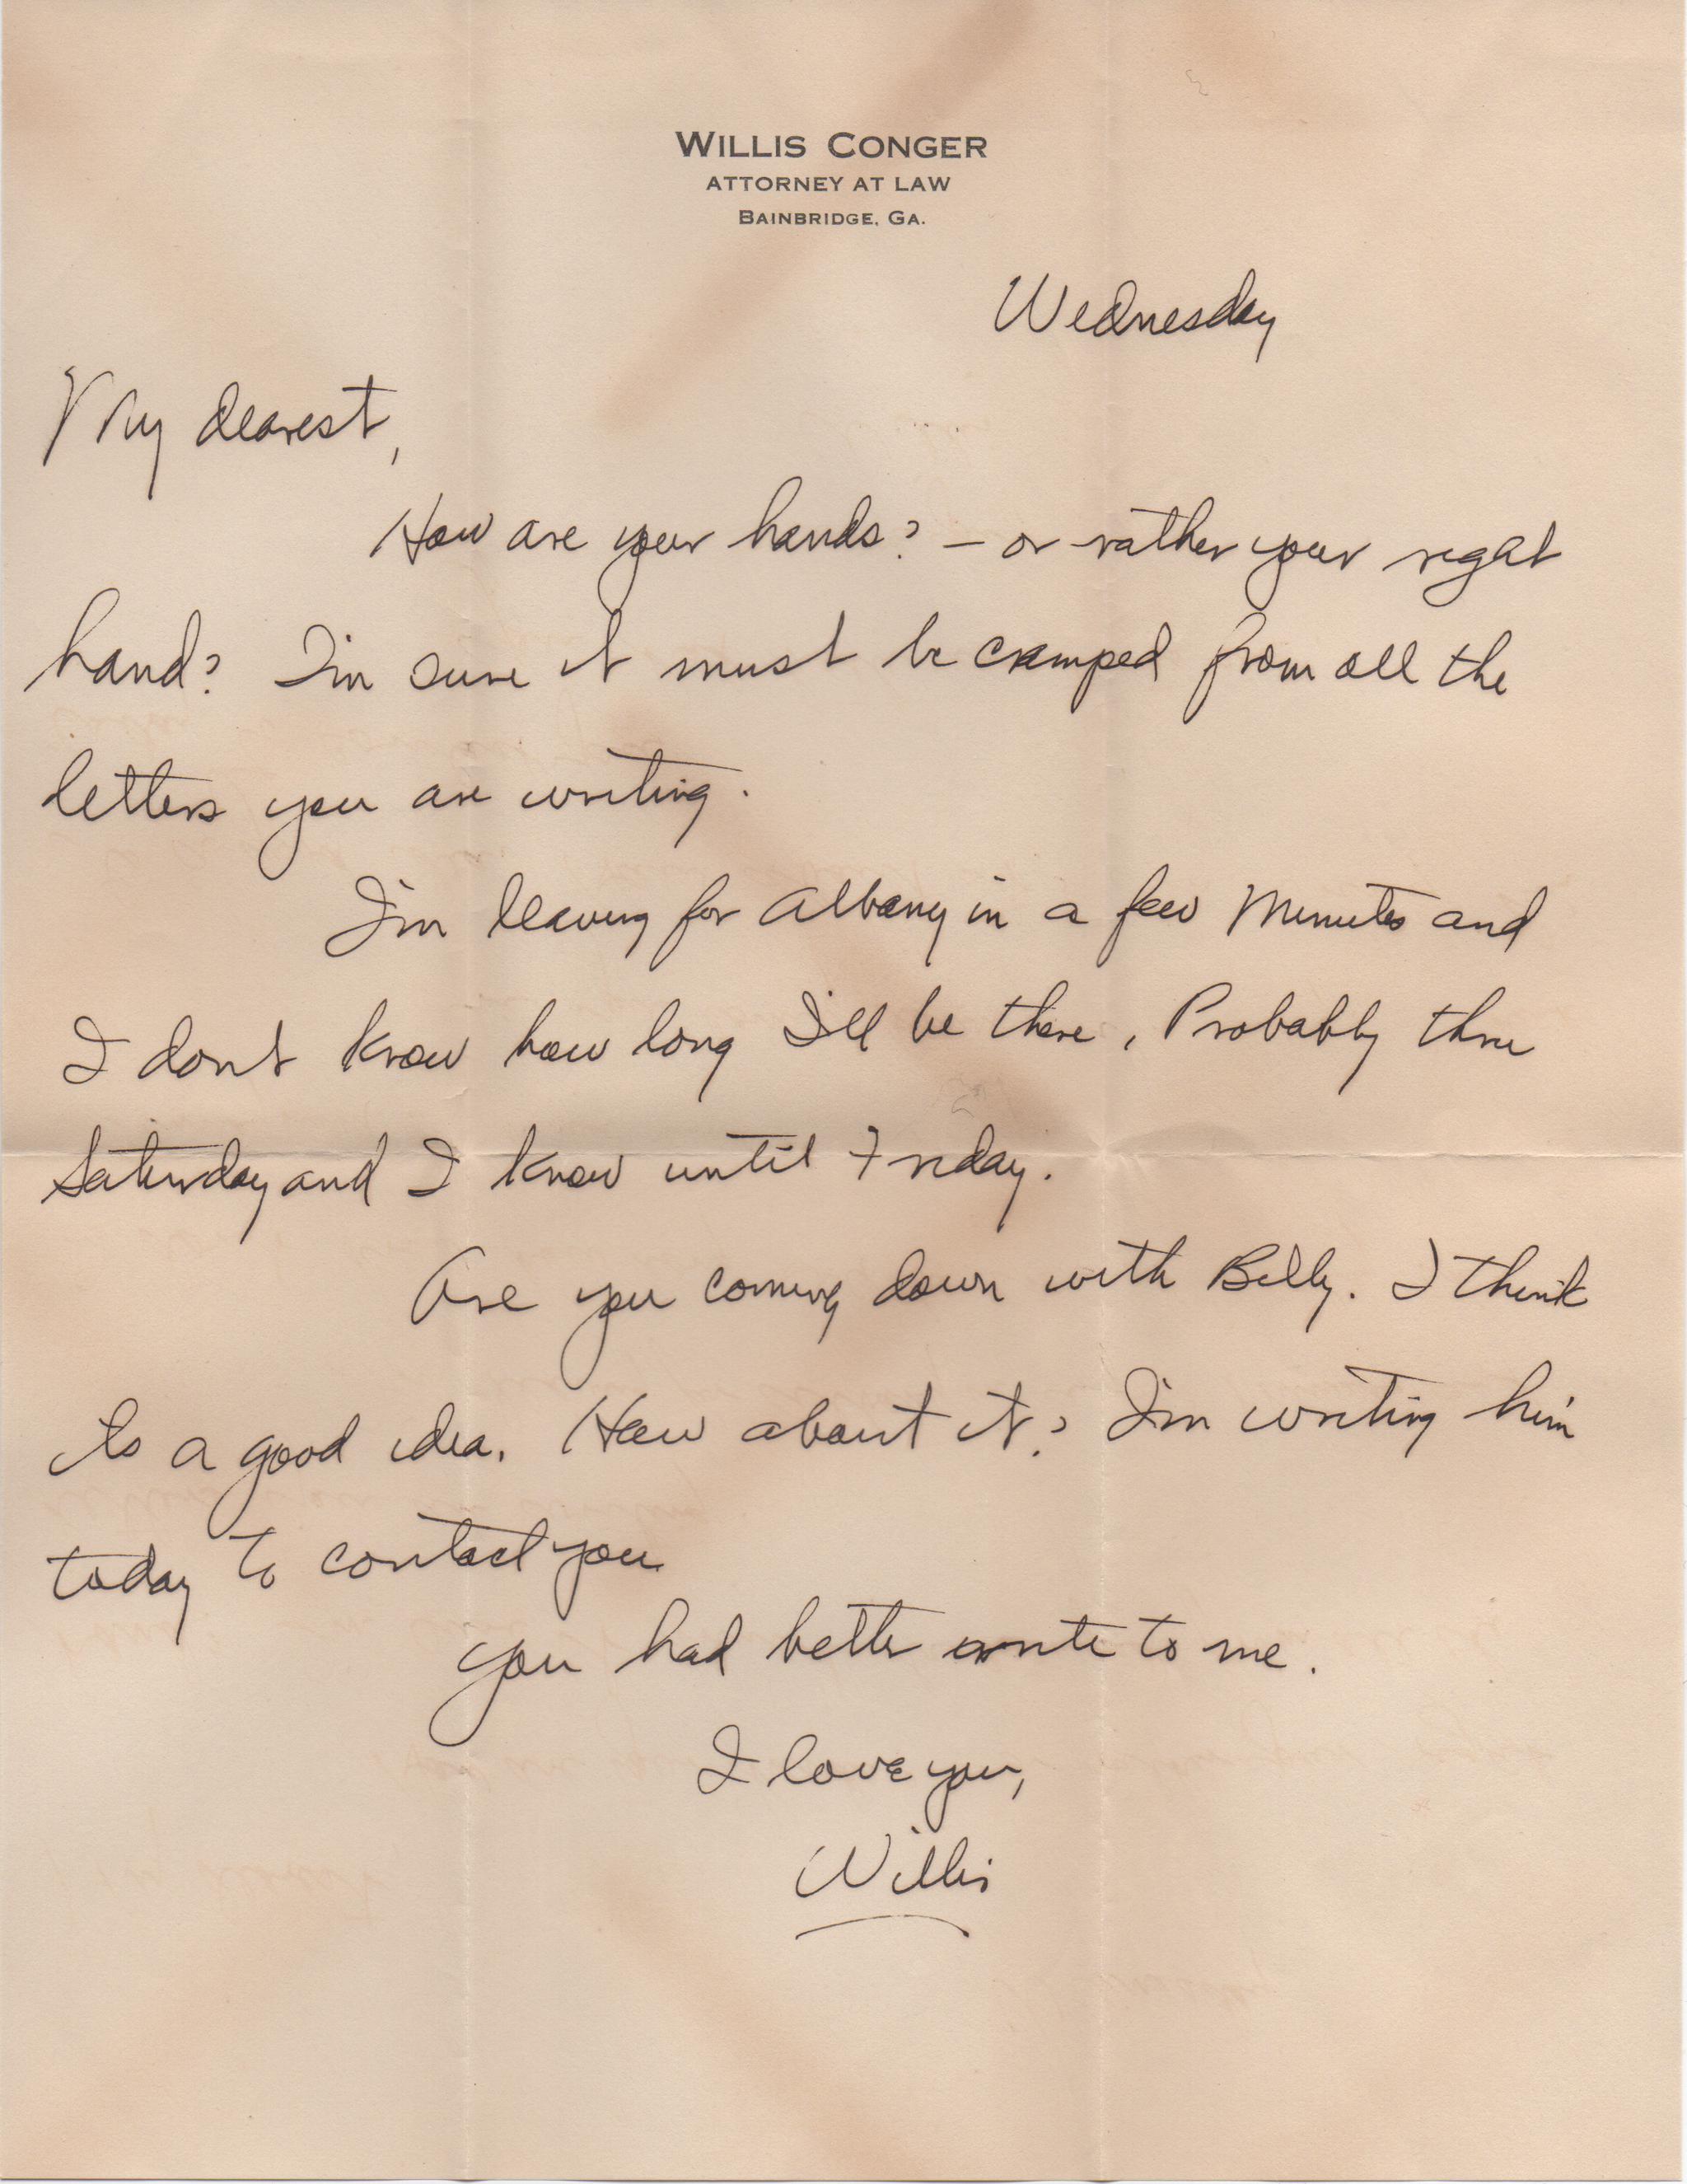 WILLIS CONGER
ATTORNEY AT LAW
BAINBRIDGE, GA.
Wednesday
My dearest,
How are your hands? – or rather your right
hand? I'm sure it must be cramped from all the
letters you are writing.
I'm leaving for Albany in a few minutes and
I don't know how long I'll be there, Probably thru
Saturday and I know until Friday.
Are you coming down with Billy. I think
its a good idea. How about it? I'm writing him
today to contact you
you had better write to me.
I love you,
Willis